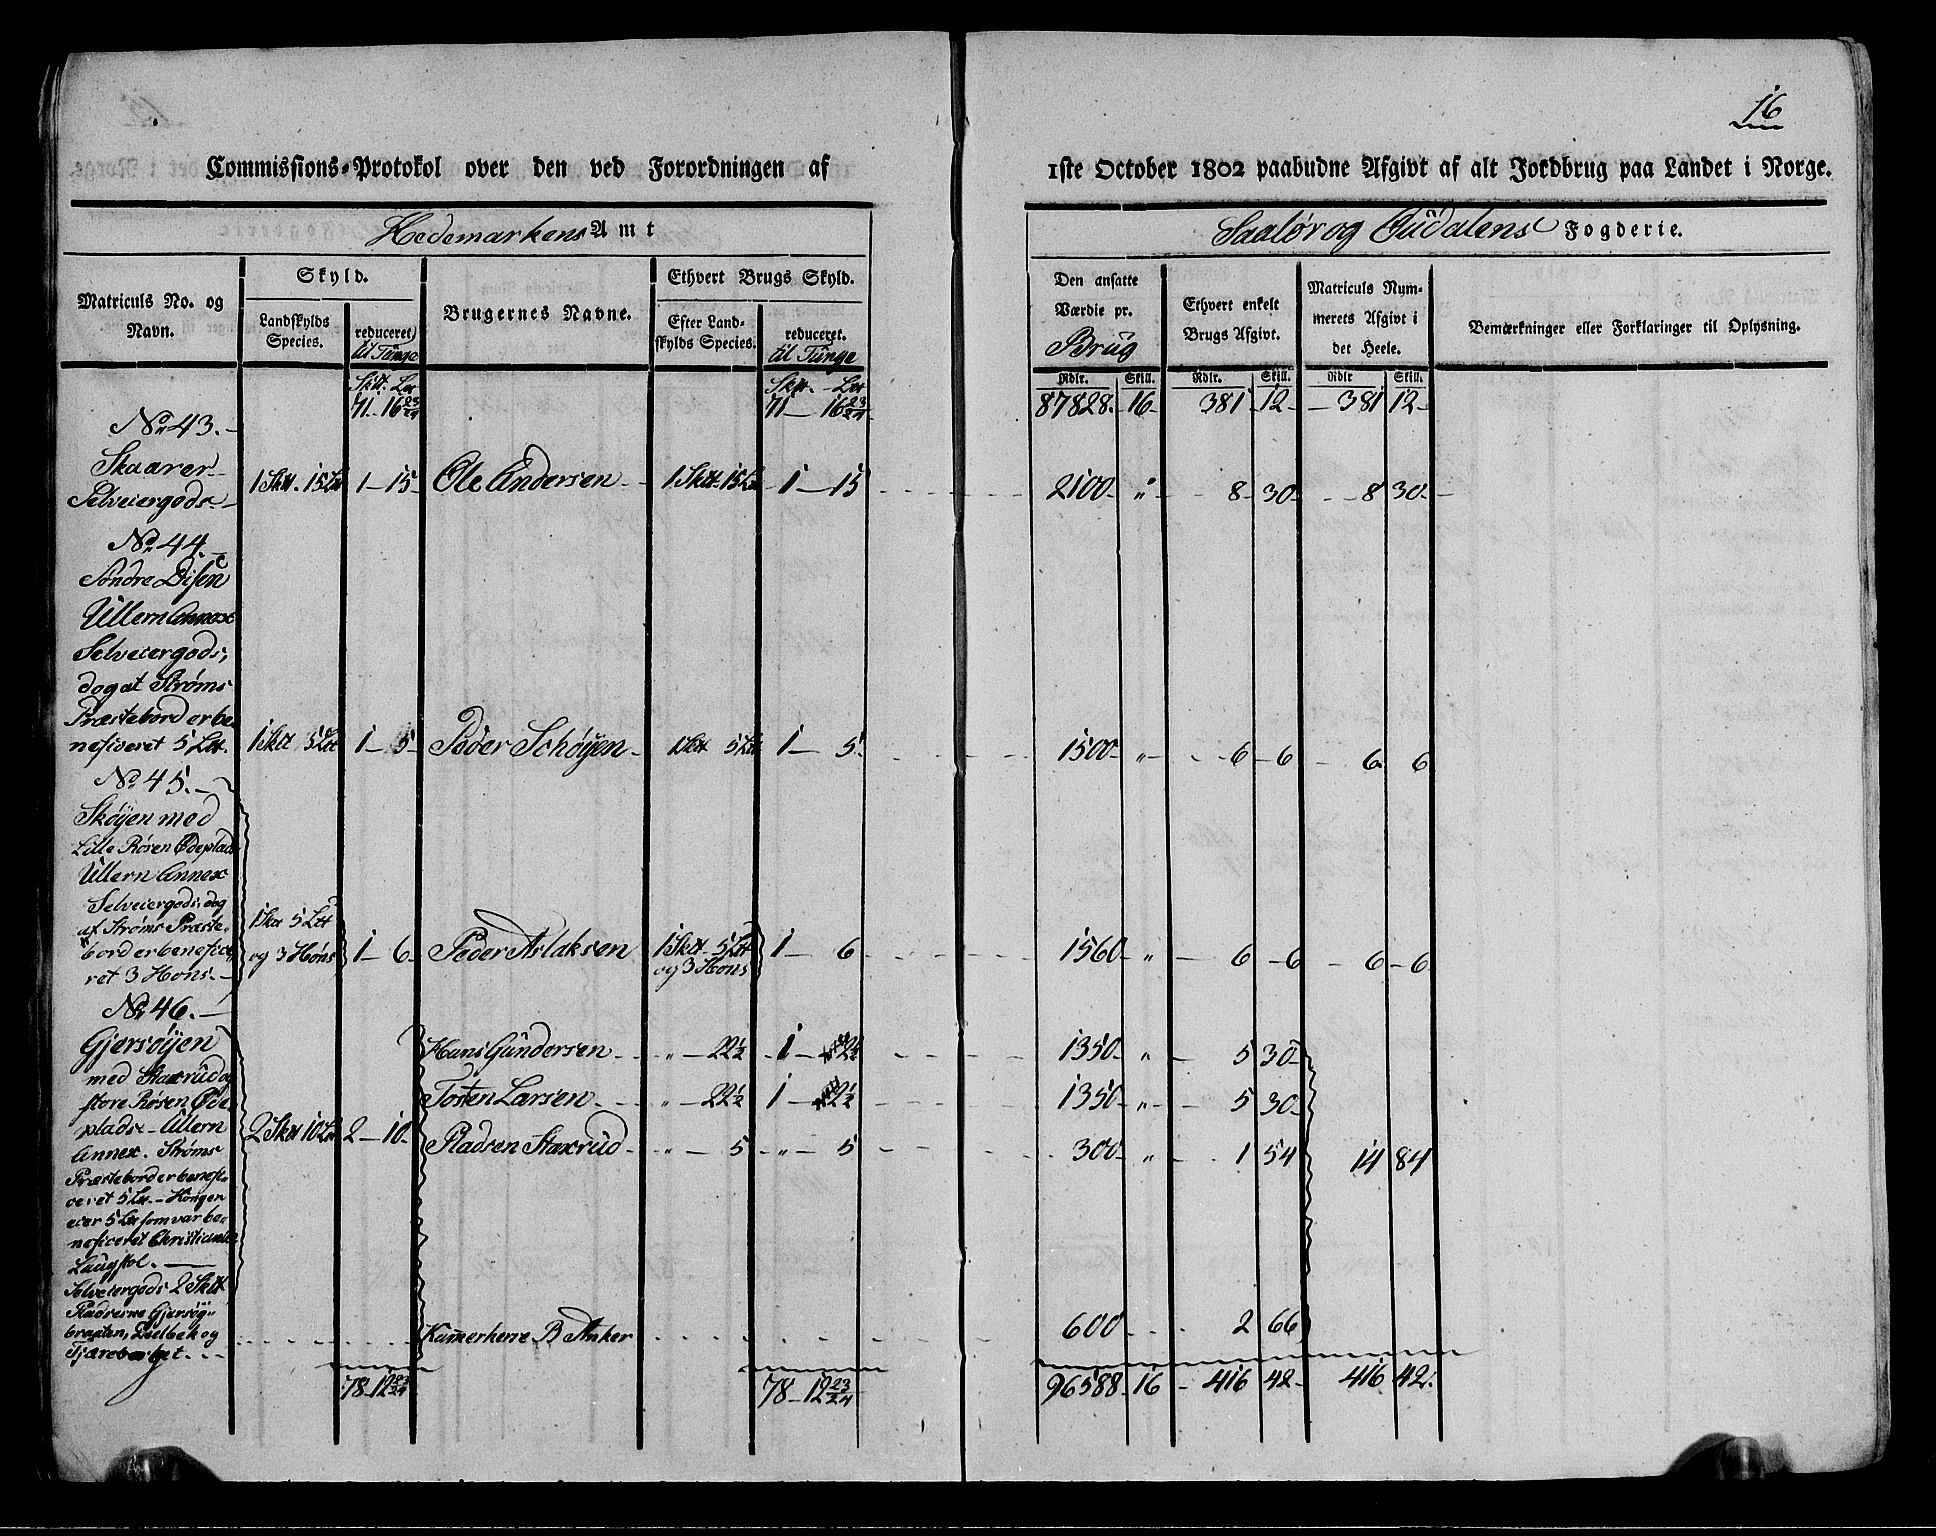 16
Commissions-Protokol over den ved Forordningen af 1ste October 1802 paabudne Afgivt af alt Jordbrug paa Landet i Norge.
Hedemarkens Amt
Fogderie.
Matriculs No. og Navn.
Skyld.
Landskylds Species.
reduceret til Tunge
Brugernes Navne.
Ethvert Brugs Skyld.
Efter Landskylds Species.
reduceret. til Tunge
Den ansatte Værdie pr. Brug
Ethvert enkelt Brugs Afgivt.
Matriculs Nummerets Afgivt i det Heele.
Bemærkninger eller Forklaringer til Oplysning.
Rdlr. Skill. Rdlr. Skill. Rdlr Skill.
71 - 16 23/24 71 - 16 23/24 87828. 16 - 381 - 12 - 381 12 -
No 43.
Skaarer
Selveiergods. 1 Sktt. 15 Ltt 1 - 15 - Ole Andersen 1 Sktt. 15 Ltt 1 - 15 2100 - " 8 - 30 - 8 30 -
No 44.
Søndre Disen
Ullern Annex
Selveiergods,
dog at Strøms
Præstebord er be-
neficeret 5 Ltt. 1 Sktt 5 Ltt 1 - 5 - Peder Schøyen 1 Sktt 5 Ltt 1 - 5. 1500 - " 6 - 6 6 6
No 45.
Skøyen med
Lille Røsen Ødeplads
Ullern Annex
Selveiergods, dog
af Strøms Præste-
bord er benefice-
ret 3 Høns. 1 Skt 5 Ltt og 3 Høns 1 - 6 - Peder Aslaksen 1 Sktt. 5 Ltt og 3 Høns 1 - 6 1560 " 6 - 6 6 - 6
No 46.
Gjersøyen
med Staxrud og
store Røsen Øde-
plads - Ullern
Annex. Strøms
Præstebord er benefi-
ceret 5 Ltt. - Kongen
eier 5 Ltt som var be-
neficeret Christiania
Laugstol.
Selveiergods 2 Sktt
Pladserne Gjersøg-
braaten, og
2 Sktt 10 Ltt 2 - 10 -
Hans Gundersen " - 22½ 1 - 1350 - " 5 30 -
Tosten Larsen " - 22½ 1 - 1350 - " 5 30 -
Pladsen Staxrud " - 5 " - 5 300 - " 1 54 14 84
Kamerherre B Anker 600 2 66
78 - 12 23/24 78 - 12 23/24 96588 - 16 - 416 - 42 - 416 42.